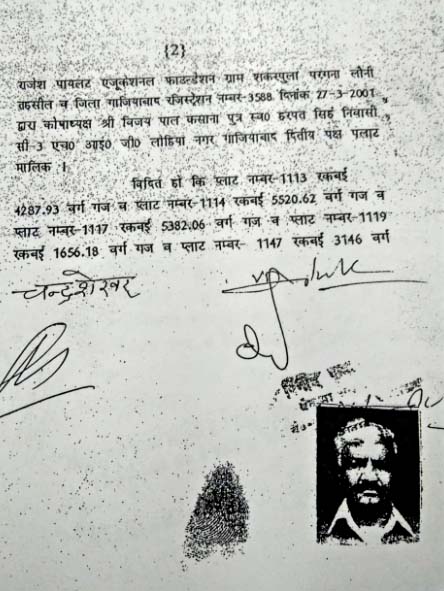 {2}
राजेश पायलट एजुकेशनल फाउन्डेशन ग्राम शकरपुला परगना लोनी
तहसील व जिला गाजियाबाद रजिस्ट्रेशन नम्बर-3588 दिनांक 27-3-2001
द्वारा कोषाध्यक्ष श्री विजय पाल कसाना पुत्र स्व० हरपत सिंह निवासी
सी-3 एच० आई० जी० लोहिया नगर गाजियाबाद दितीय पक्ष पलाट
मालिक ।
विदित हो कि प्लाट नम्बर-1113 रकबई
4287.93 वर्ग गज व प्लाट नम्बर-1114 रकबई 5520.62 वर्ग गज व
प्लाट नम्बर-1117 रकबई 5382.06 वर्ग गज व प्लाट नम्बर-1119
रकबई 1656.18 वर्ग गज व प्लाट नम्बर- 1147 रकबई 3146 वर्ग
चन्द्रशेखर